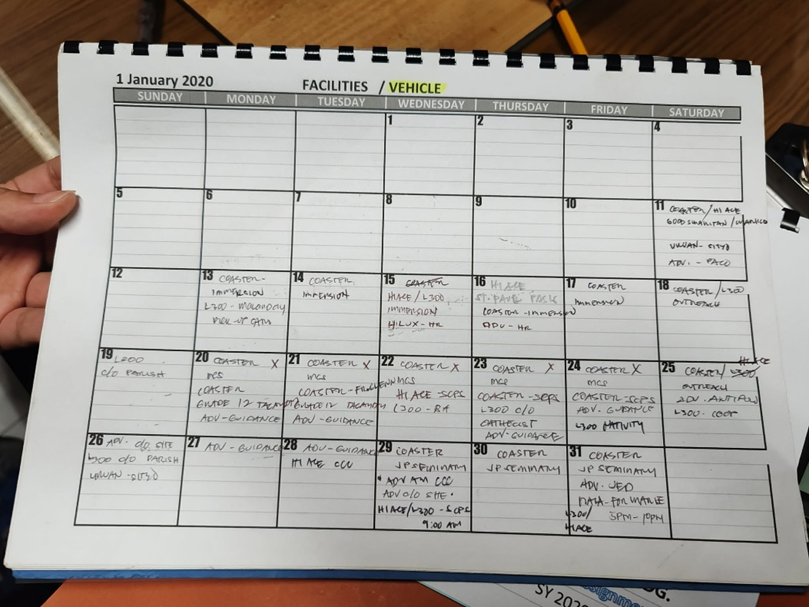 1 January 2020
FACILITIES / VEHICLE
SUNDAY MONDAY TUESDAY WEDNESDAY THURSDAY FRIDAY SATURDAY
1 2 3 4
5 6 7 8 9 10 11
COASTER/HI ACE
GOOD SAMARITAN /
URVAN -
ADV. - PACO
12
13 COASTER-
IMMERSION
L300 -
PICK-UP
14 COASTER
IMMERSION
15 COASTER
HIACE / L300
IMMERSION
HILUX - HR
16 HI ACE
COASTER - IMMERSION
ADV - HR
17 COASTER
IMMERSION
18 COASTER/L300
OUTREACH
19 L300
C/O PARISH
20 COASTER X
MCS
COASTER
GRADE 12
ADV - GUIDANCE
21 COASTER X
MCS
COASTER -
GRADE 12
ADV - GUIDANCE
22 COASTER X
MCS
HI ACE SCPS
L300 -
23 COASTER X
MCS
COASTER - SCPS
L300 C/O
CATHECIST
ADV - GUIDANCE
24 COASTER X
MCS
COASTER - SCPS
ADV. GUIDANCE
L300 NATIVITY
25 COASTER/ L300 HI ACE
OUTREACH
ADV. ANTIPOLO
L300 -
26 ADV. C/O SITE
L300 C/O PARISH
URVAN -
27 ADV - GUIDANCE
28 ADV - GUIDANCE
HI ACE CCC
29 COASTER
JP SEMINARY
• ADV AM CCC
ADV C/O SITE •
HIACE/L300 - SCPS
9:00 AM
30 COASTER
JP SEMINARY
31 COASTER
JP SEMINARY
ADV - JED
L300/ 3PM - 10PM
HIACE
SY 202